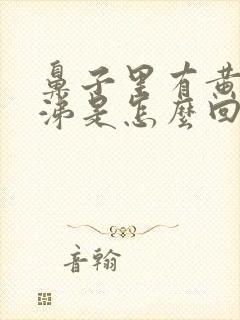 鼻子里有黄
涕是怎麼回
音翰